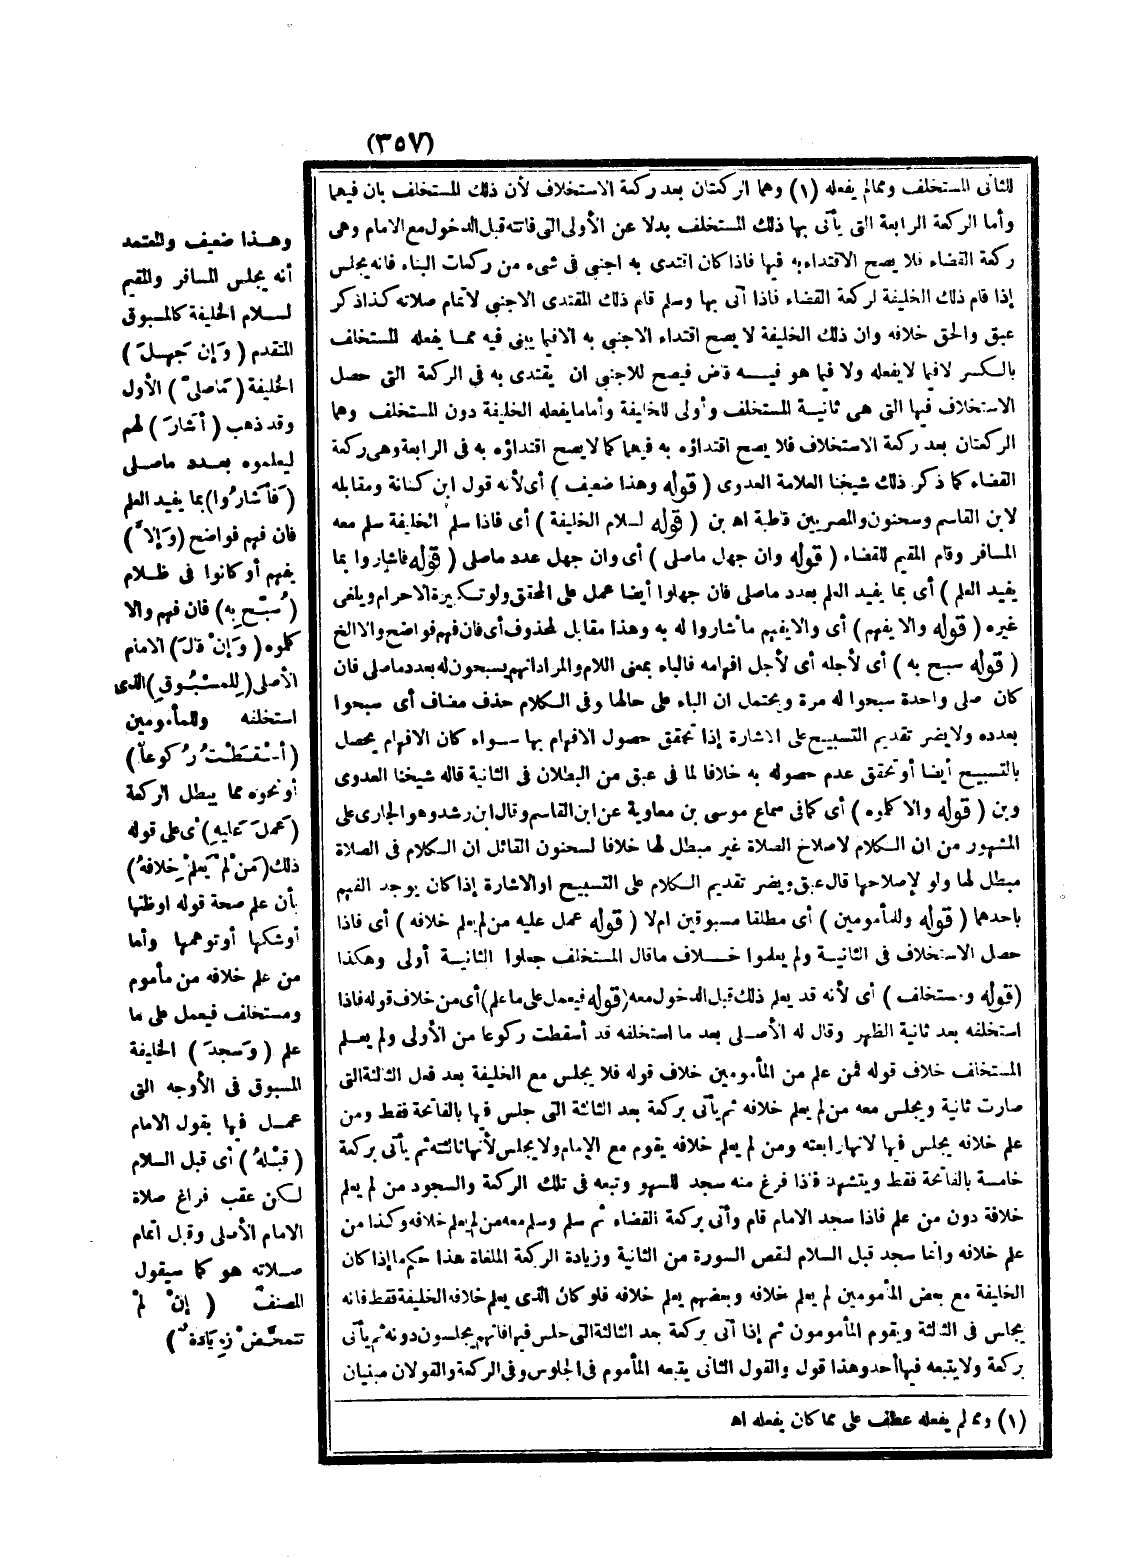 (٣٥٧)
للثانى المستخلف ومما لم يفعله (١) وهما الركعتان بعد ركعة الاستخلاف لأن ذلك المستخلف بان فيهما
وأما الركعة الرابعة التى يأتى بها ذلك المستخلف بدلا عن الأولى التى فاتته قبل الدخول مع الامام وهى
ركعة القضاء فلا يصح الاقتداء به فيها فاذا كان اقتدى به اجنبى فى شىء من ركعات البناء فانه يجلس
إذا قام ذلك الخليفة لركعة القضاء فاذا أتى بها وسلم قام ذلك المقتدى الاجنبى لاتمام صلاته كذا ذكر
عبق والحق خلافه وان ذلك الخليفة لا يصح اقتداء الاجنبى به الا فيما يبنى فيه مما يفعله المستخلف
بالكسر لا فيما لا يفعله ولا فيما هو فيه قاض فيصح للاجنبى ان يقتدى به فى الركعة التى حصل
الاستخلاف فيها التى هى ثانية المستخلف وأولى للخليفة وأما ما يفعله الخليفة دون المستخلف وهما
الركعتان بعد ركعة الاستخلاف فلا يصح اقتداؤه به فيهما كما لا يصح اقتداؤه به فى الرابعة وهى ركعة
القضاء كما ذكر ذلك شيخنا العلامة العدوى (قوله وهذا ضعيف) أى لأنه قول ابن كنانة ومقابله
لابن القاسم وسحنون والمصريين قاطبة اه بن (قوله لسلام الخليفة) أى فاذا سلم الخليفة سلم معه
المسافر وقام المقيم للقضاء (قوله وان جهل ماصلى) أى وان جهل عدد ماصلى (قوله فاشاروا بما
يفيد العلم) أى بما يفيد العلم بعدد ماصلى فان جهلوا أيضا عمل على المحقق ولو تكبيرة الاحرام ويلغى
غيره (قوله والا يفهم) أى والا يفهم ما أشاروا له به وهذا مقابل لمحذوف أى فان فهم فواضح والا الخ
(قوله سبح به) أى لأجله أى لأجل افهامه فالباء بمعنى اللام والمراد انهم يسبحون له بعدد ماصلى فان
كان صلى واحدة سبحوا له مرة ويحتمل ان الباء على حالها وفى الكلام حذف مضاف أى سبحوا
بعدده ولا يضر تقديم التسبيح على الاشارة إذا تحقق حصول الافهام بها سواء كان الافهام يحصل
بالتسبيح أيضا أو تحقق عدم حصوله به خلافا لما فى عبق من البطلان فى الثانية قاله شيخنا العدوى
وبن (قوله والا كلموه) أى كما فى سماع موسى بن معاوية عن ابن القاسم وقال ابن رشد وهو الجارى على
المشهور من ان الكلام لاصلاح الصلاة غير مبطل لها خلافا لسحنون القائل ان الكلام فى الصلاة
مبطل لها ولو لإصلاحها قال عبق ويضر تقديم الكلام على التسبيح او الاشارة إذا كان يوجد الفهم
باحدهما (قوله وللمأمومين) أى مطلقا مسبوقين ام لا (قوله عمل عليه من لم يعلم خلافه) أى فاذا
حصل الاستخلاف فى الثانية ولم يعلموا خلاف ما قال المستخلف جعلوا الثانية أولى وهكذا
(قوله ومستخلف) أى لأنه قد يعلم ذلك قبل الدخول معه (قوله فيعمل على ما علم) أى من خلاف قوله فاذا
استخلفه بعد ثانية الظهر وقال له الأصلى بعد ما استخلفه قد أسقطت ركوعا من الأولى ولم يعلم
المستخلف خلاف قوله فمن علم من المأمومين خلاف قوله فلا يجلس مع الخليفة بعد فعل الثالثة التى
صارت ثانية ويجلس معه من لم يعلم خلافه ثم يأتى بركعة بعد الثالثة التى جلس فيها بالفاتحة فقط ومن
علم خلافه يجلس فيها لانها رابعته ومن لم يعلم خلافه يقوم مع الإمام ولا يجلس لأنها ثالثته ثم يأتى بركعة
خامسة بالفاتحة فقط ويتشهد فاذا فرغ منه سجد للسهو وتبعه فى تلك الركعة والسجود من لم يعلم
خلافة دون من علم فاذا سجد الامام قام وأتى بركعة القضاء ثم سلم وسلم معه من لم يعلم خلافه وكذا من
علم خلافه وانما سجد قبل السلام لنقص السورة من الثانية وزيادة الركعة الملغاة هذا حكم ما إذا كان
الخليفة مع بعض المأمومين لم يعلم خلافه وبعضهم يعلم خلافه فلو كان الذى يعلم خلافه الخليفة فقط فانه
يجلس فى الثالثة ويقوم المأمومون ثم إذا أتى بركعة بعد الثالثة التى جلس فيها فانهم يجلسون دونه ثم يأتى
بركعة ولا يتبعه فيها أحد وهذا قول والقول الثانى يتبعه المأموم فى الجلوس وفى الركعة والقولان مبنيان
(١) ومما لم يفعله عطف على مما كان يفعله اه
وهذا ضعيف والمعتمد
أنه يجلس المسافر والمقيم
لسلام الخليفة كالمسبوق
المتقدم (وَإن جَهِلَ)
الخليفة (مَاصلى) الأول
وقد ذهب (أشَارَ) لهم
ليعلموه بعدد ماصلى
(فَأشَارُوا) بما يفيد العلم
فان فهم فواضح (وَإلاّ)
يفهم أو كانوا فى ظلام
(سُبّحَ به) فان فهم والا
كلموه (وَإنْ قالَ) الامام
الأصلى (للمَسْبُوقِ) الذى
استخلفه وللمأمومين
(أسْقَطْتُ رُكوعاً)
أو نحوه مما يبطل الركعة
(عَمِلَ عَليهِ) أى على قوله
ذلك (مَنْ لمْ يَعلمْ خِلافهُ)
بأن علم صحة قوله او ظنها
أو شكها أو توهمها وأما
من علم خلافه من مأموم
ومستخلف فيعمل على ما
علم (وَسجدَ) الخليفة
المسبوق فى الأوجه التى
عمل فيها بقول الامام
(قبْلهُ) أى قبل السلام
لكن عقب فراغ صلاة
الامام الأصلى وقبل اتمام
صلاته هو كما سيقول
المصنف (إنْ لمْ
تتمحّضْ زِيَادَة)